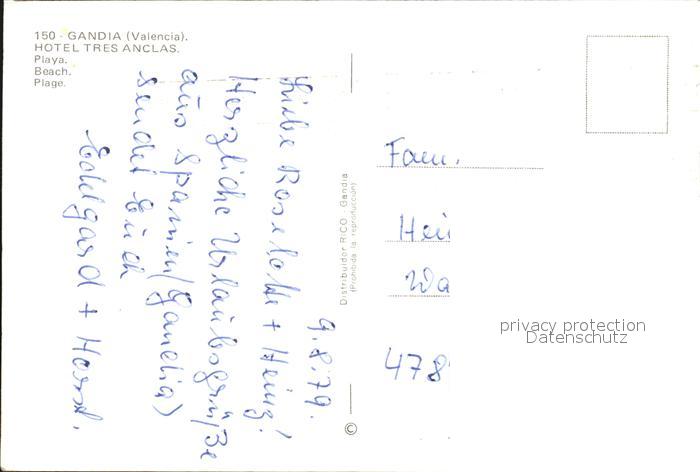 150 - GANDIA (Valencia).
HOTEL TRES ANCLAS.
Playa.
Beach.
Plage.
9.8.79.
Liebe Roselotte + Heinz!
Herzliche Urlaubsgrüße
aus Spanien/Gandia)
sendet Euch
Edelgard + Horst.
Distribuidor RICO - Gandia
(Prohibida la reproducción)
©
Fam.
Hei
Wa
478
privacy protection
Datenschutz